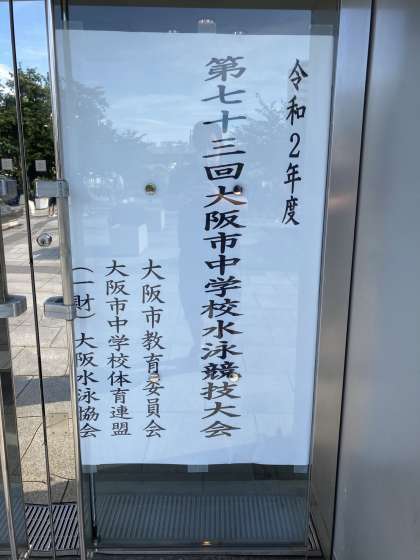 令和2年度
第七十三回大阪市中学校水泳競技大会
大阪市教育委員会
大阪市中学校体育連盟
(一財)大阪水泳協会